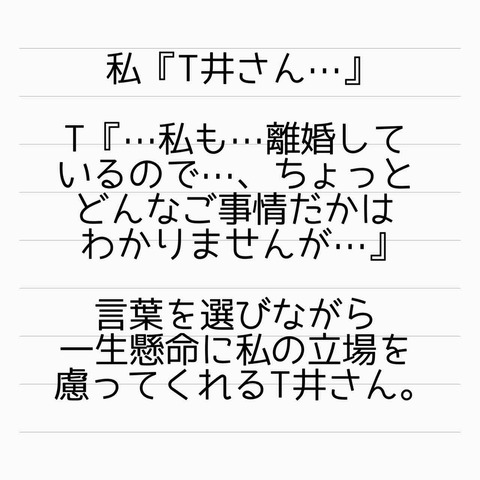 私『T井さん…』
T『…私も…離婚して
いるので…、ちょっと
どんなご事情だかは
わかりませんが…』
言葉を選びながら
一生懸命に私の立場を
慮ってくれるT井さん。